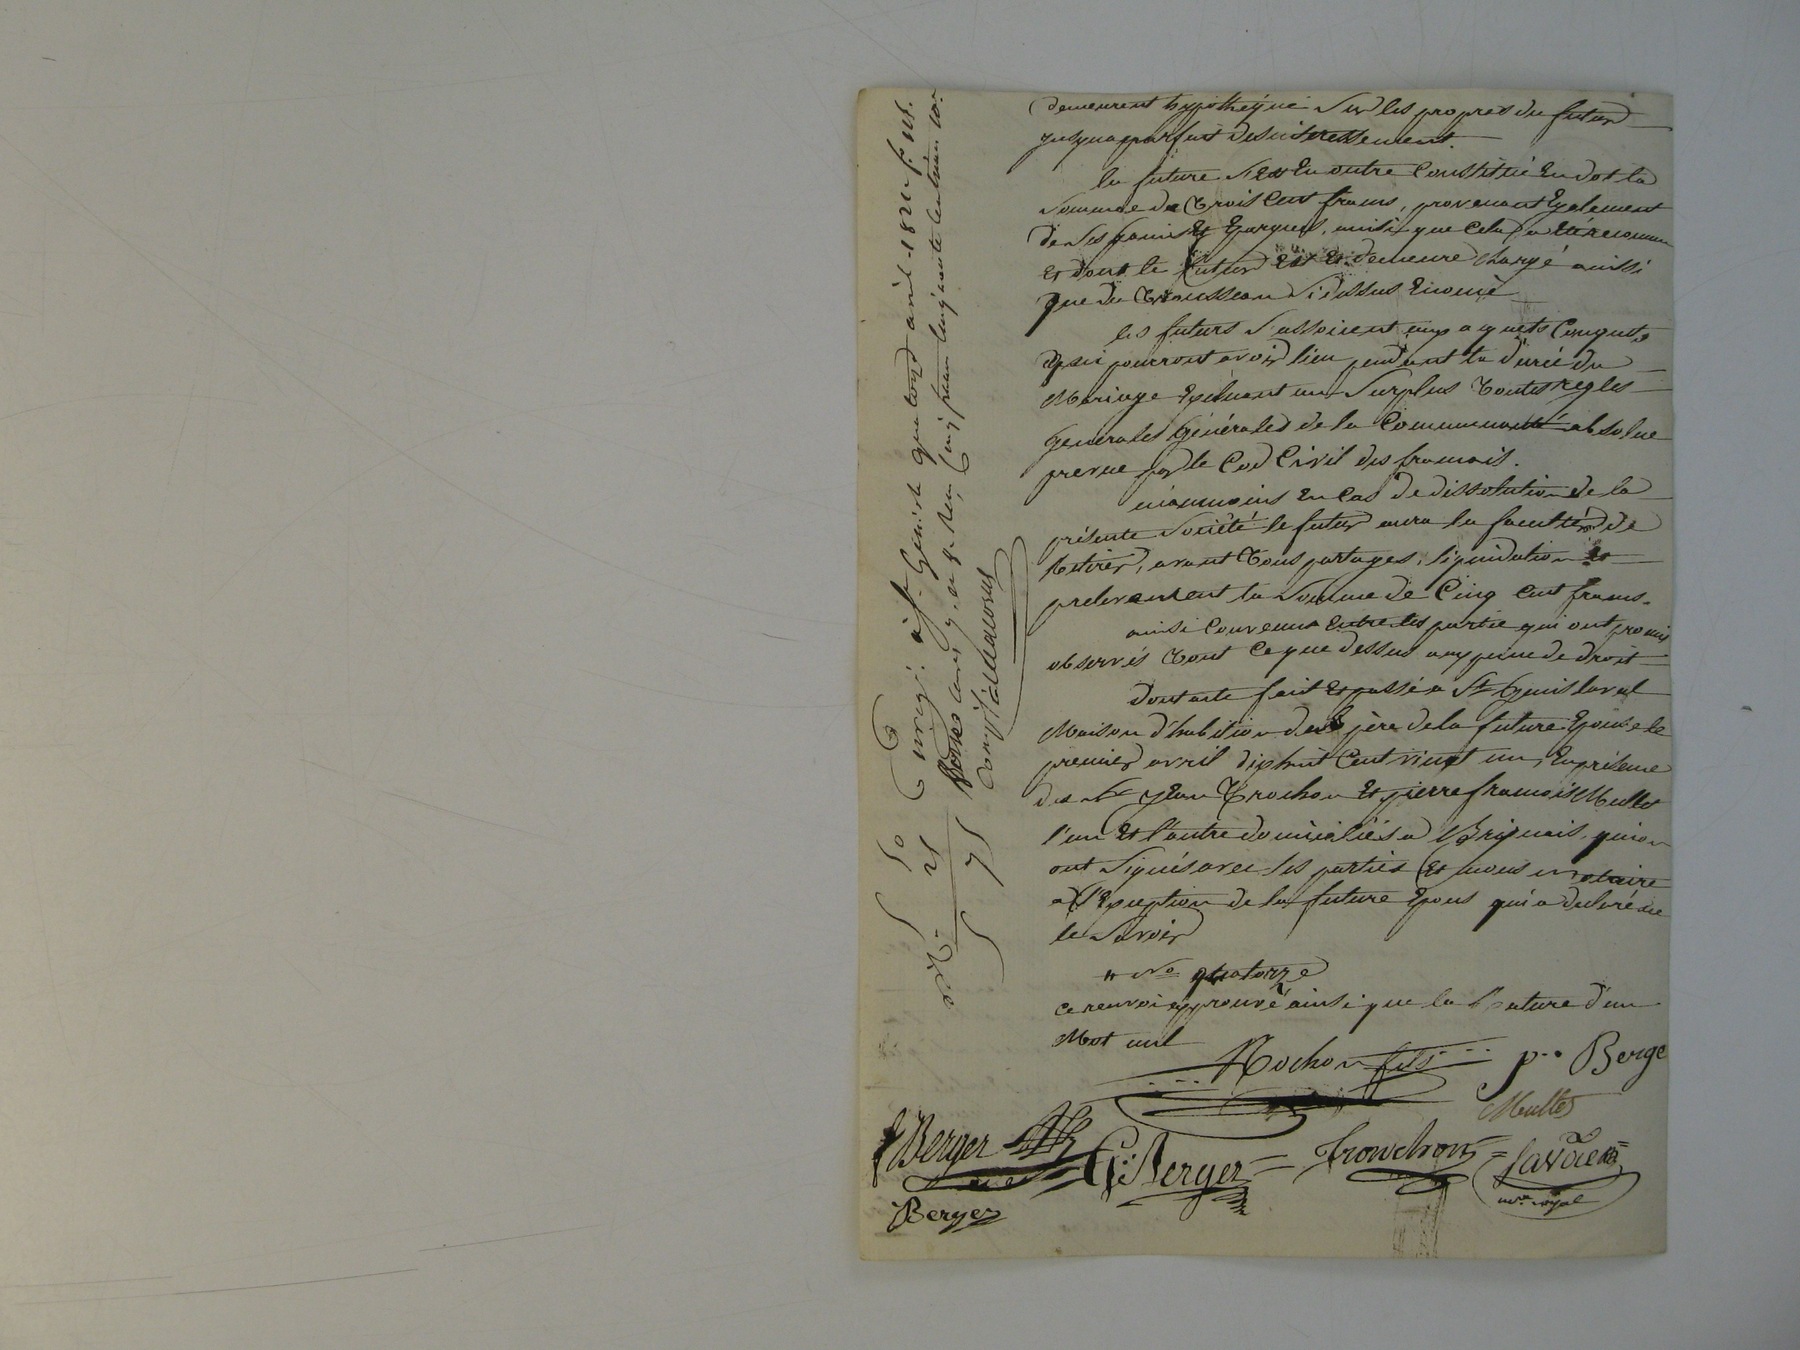 demeurent hypothequé sur les propres du futur
jusqua parfait desinteressement.
la future s'est en outre constitué en dot la
somme de trois cent francs, provenant egalement
de ses gains et epargnes, ainsi que cela a eté reconnu
et dont le futur est et demeure chargé aussi
que du trousseau si dessus enoncé
les futurs s'associent aux aquets conquets
qui pourront avoir lieu pendant la durée du
Mariage excluant au surplus toutes regles
generales générales de la communauté absolue
prevue par le Cod Civil des francais.
néanmoins en cas de dissolution de la
présente société le futur aura la faculté de
retirer, avant tous partages, liquidation et
prelevement la somme de Cinq cent francs.
ainsi convenu entre les partie qui ont promis
observés tout ce que dessus aux peine de droit
dont acte fait et passé a St Genis laval
Maison d'habition du père de la future Epouse le
premier avril dixhuit cent vingt un, en présence
des sr jean Trochon et pierre francois Mullet
l'un et l'autre domiciliés a Brignais, qui
ont signés avec les parties et nous notaire
a l'exception de la future Epous qui a declaré ne
le savoir
n No quatorze
ce renvoi approuvé ainsi que la rature d'un
Mot nul
Rochon fils
p.. Berge
Mullet
Berger
G: Berger
Trouchon
Berger
nre royal
Enregé. à St. Genis le quatorze avril 1821 f. 108.
cinq francs cinquante centimes